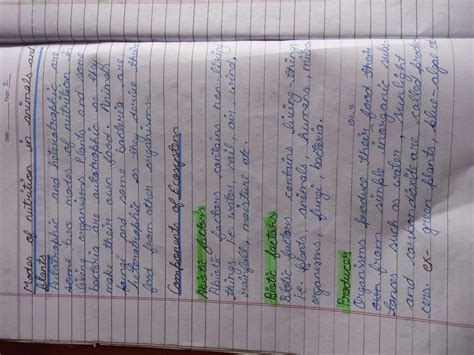 Date: Page: 2
Modes of nutrition in animals and
plants
Autotrophic and heterotrophic are
some two modes of nutrition in
living organisms. Plants and some
bacteria are autotrophic as they
make their own food. Animals
fungi and some bacteria are
heterotrophic as they derive their
food from other organisms.
Components of Ecosystem
Abiotic factors
Abiotic factors contains non-living
things i.e water, soil, air, wind,
rainfall, moisture etc.
Biotic factors
Biotic factors contains living things
i.e. plants animals, humans, micro
organisms, fungi, bacteria.
Producer
Organisms produce their food their
own from simple inorganic subs-
tances such as water, sun light
and carpon dioxide are called produ
cers. ex- green plants, blue-algae etc